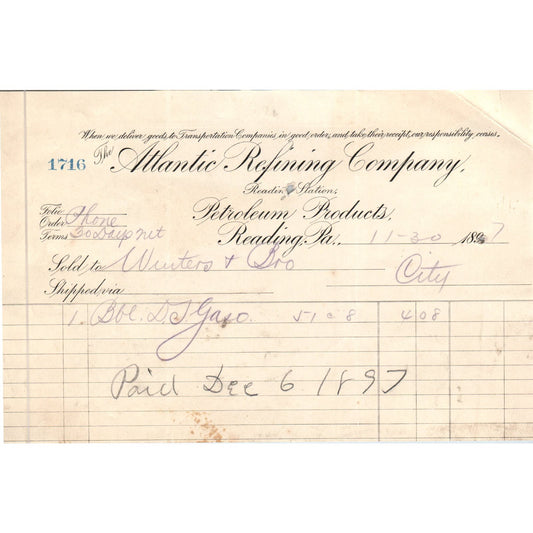 When we deliver goods to Transportation Companies, in good order, and take their receipt, our responsibility ceases.
1716 The Atlantic Refining Company,
Reading Station,
Petroleum Products,
Folio
Order Phone
Terms 30 Days net
Reading, Pa., 11-30 1897
Sold to Winters + Bro City
Shipped via
1. Bbl. D.S Gaso. 51 @ 8 4 08
Paid Dec 6 1897